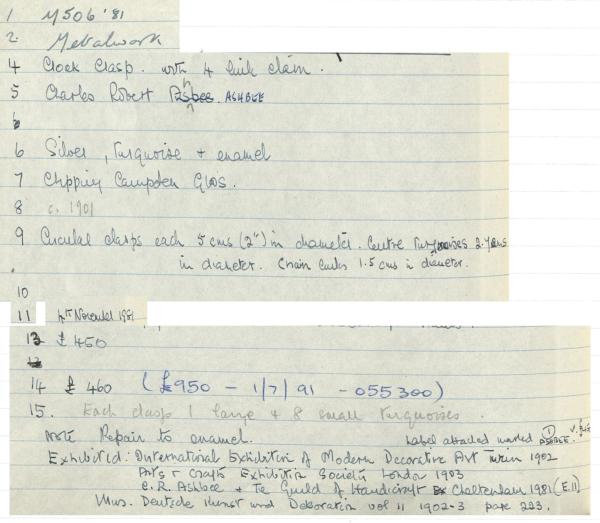 1 M506 '81
2 Metalwork
4 Clock Clasp. with 4 link chain.
5 Charles Robert Ashbee. ASHBEE
6
6 Silver, turquoise + enamel
7 Chipping Campden Glos.
8 c. 1901
9 Circular clasps each 5 cms (2") in diameter. Centre turquoises 2.7cms
in diameter. Chain links 1.5 cms in diameter.
10
11 4th November 1981
13 £450
14 £460 (£950 - 1/7/91 - 055300)
15. Each clasp 1 large + 8 small turquoises.
Note Repair to enamel. Label attached marked (1) ASHBEE.
Exhibited: International Exhibition of Modern Decorative Art Turin 1902
Arts + Crafts Exhibition Society London 1903
C.R. Ashbee + The Guild of Handicraft Ex Cheltenham 1981 (E.11)
Illus. Deutsche Kunst und Dekoration vol 11 1902-3 page 223.